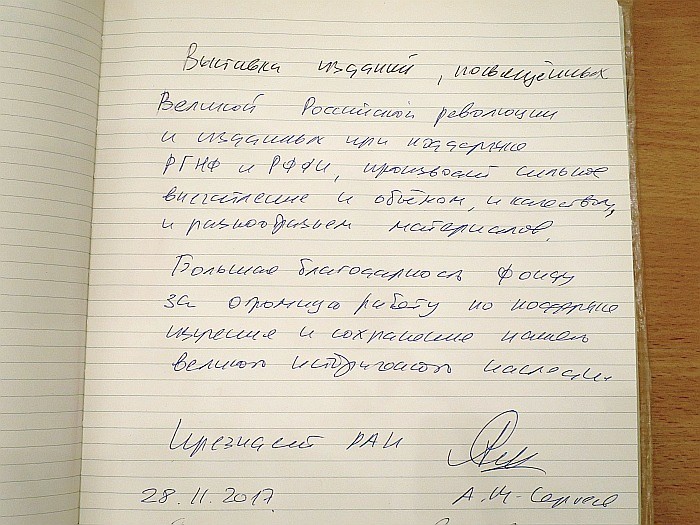 Выставка изданий, посвящённых
Великой Российской революции
и изданных при поддержке
РГНФ и РФФИ, производит сильное
впечатление и объёмом, и качеством,
и разнообразием материалов.
Большая благодарность Фонду
за огромную работу по поддержке
изучения и сохранения нашего
великого исторического наследия.
Президент РАН
28.11.2017 А.М. Сергеев